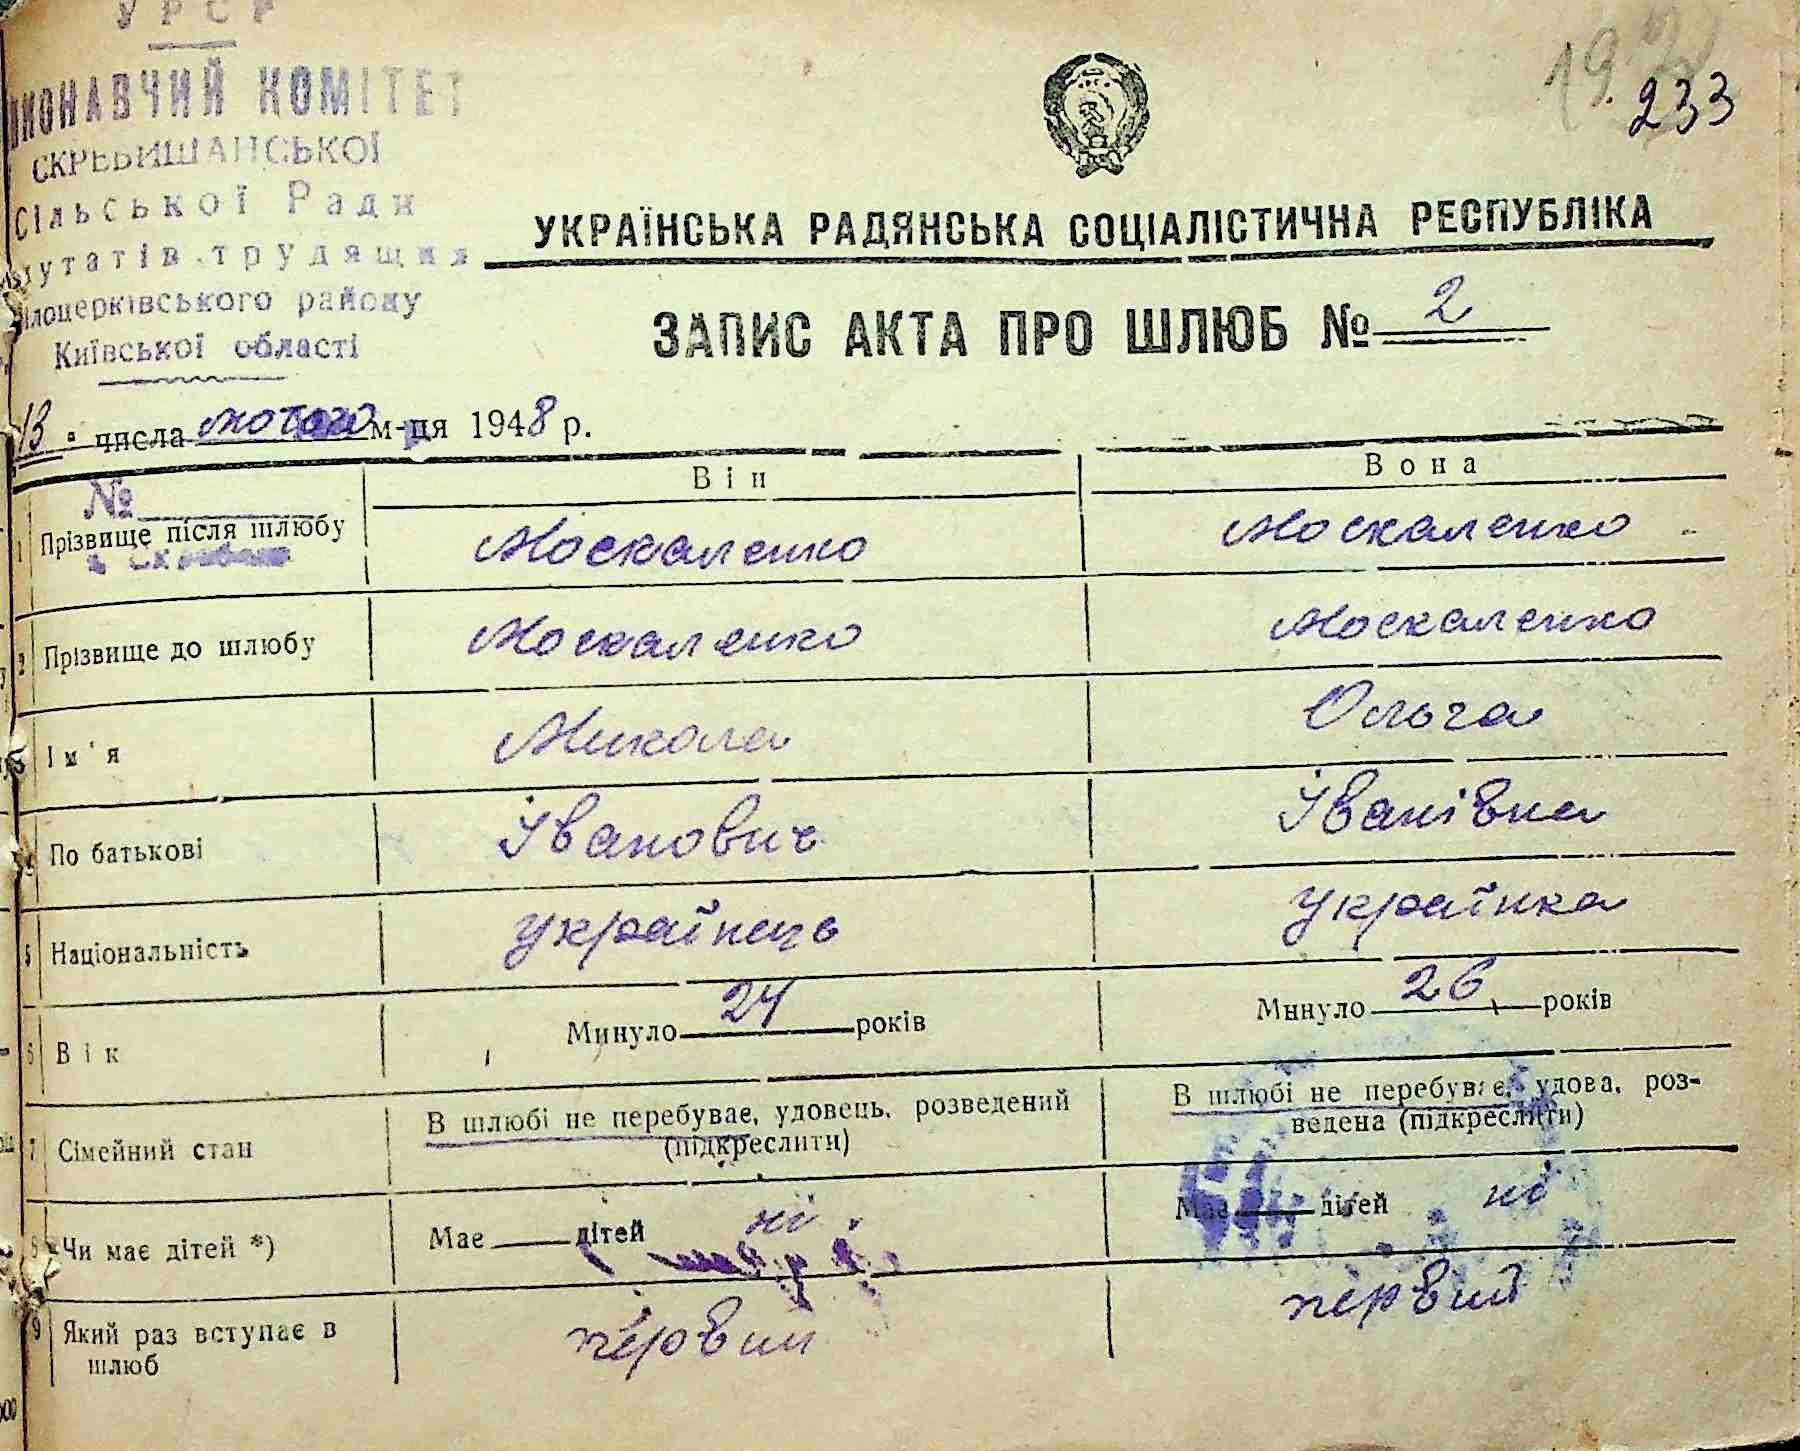 УРСР
ВИКОНАВЧИЙ КОМІТЕТ
СКРЕБИШАНСЬКОЇ
Сільської Ради
депутатів трудящих
Білоцерківського району
Київської області
233
УКРАЇНСЬКА РАДЯНСЬКА СОЦІАЛІСТИЧНА РЕСПУБЛІКА
ЗАПИС АКТА ПРО ШЛЮБ № 2
13 " числа лютого м-ця 1948 р.
№
Він Вона
1 Прізвище після шлюбу Москаленко Москаленко
2 Прізвище до шлюбу Москаленко Москаленко
Ім'я Микола Ольга
По батькові Іванович Іванівна
5 Національність українець українка
6 Вік Минуло 24 років Минуло 26 років
7 Сімейний стан В шлюбі не перебуває, удовець, розведений (підкреслити) В шлюбі не перебуває, удова, роз-
ведена (підкреслити)
8 Чи має дітей *) Має дітей ні. Має дітей ні
9 Який раз вступає в первий первий
шлюб